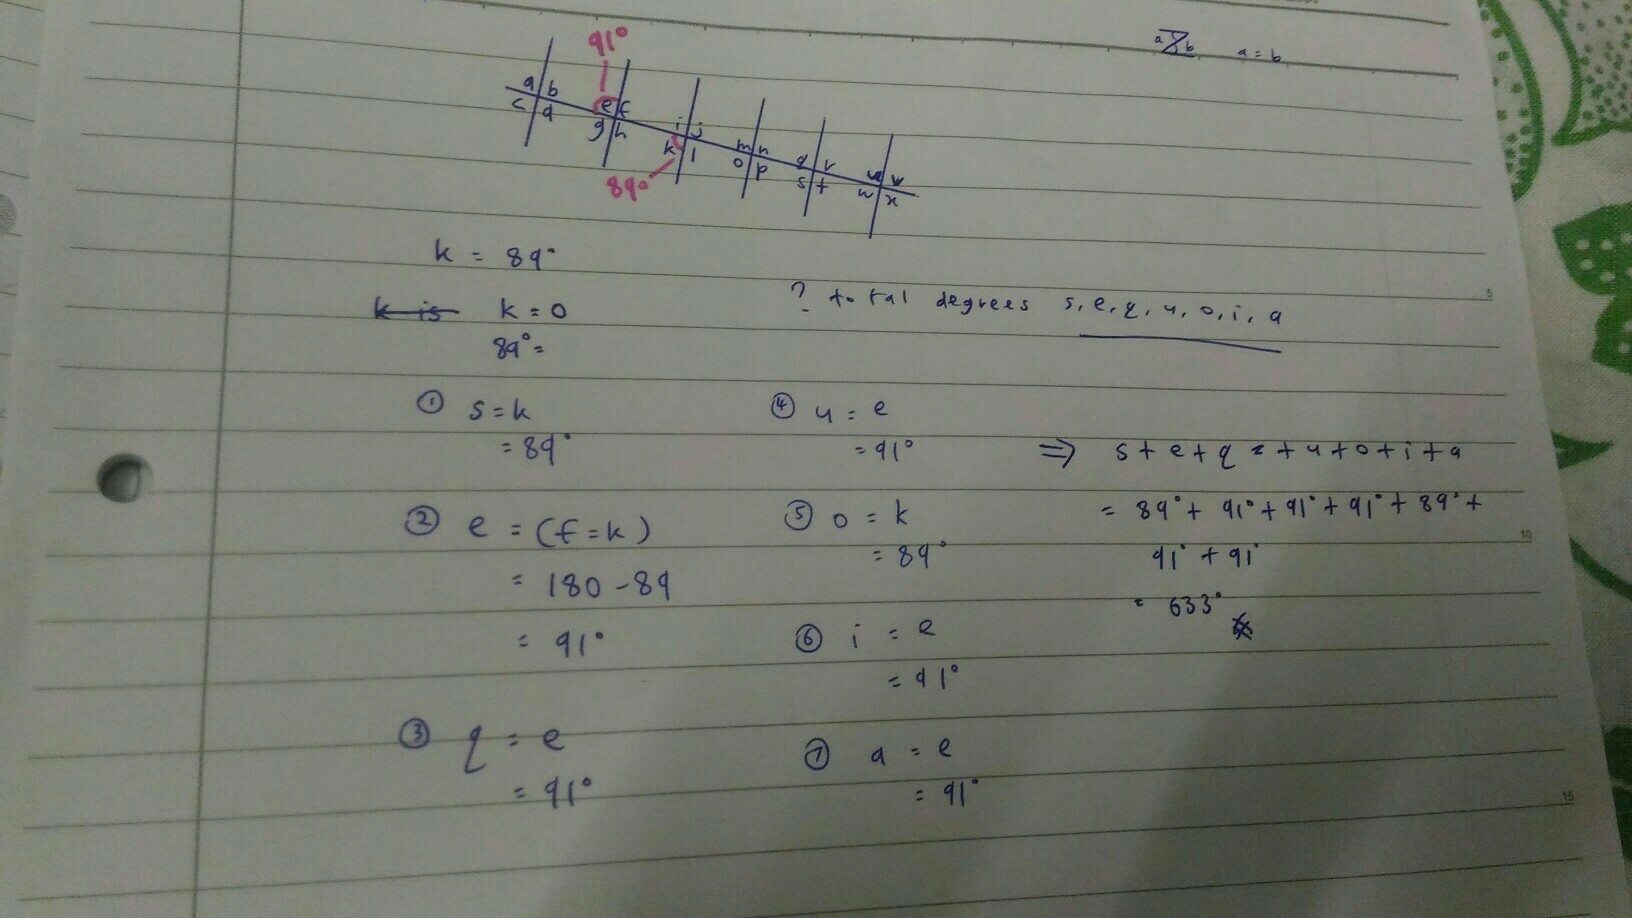 a b a = b
91°
a b
c d
e f
g h
i j
k l
m n
o p
q r
s t
u v
w x
89°
k = 89°
k is k = 0
89° =
? total degrees s, e, q, u, o, i, a
① s = k
= 89°
② e = (f = k)
= 180 - 89
= 91°
③ q = e
= 91°
④ u = e
= 91°
⑤ o = k
= 89°
⑥ i = e
= 91°
⑦ a = e
= 91°
⇒ s + e + q = + u + o + i + a
= 89° + 91° + 91° + 91° + 89° +
91° + 91°
= 633°
5
10
15